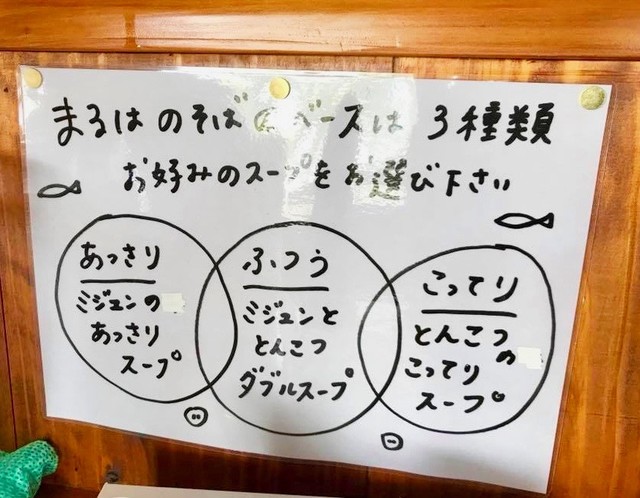 まるはのそばのベースは 3種類
お好みのスープをお選び下さい
あっさり
ミジュンの
あっさり
スープ
ふつう
ミジュンと
とんこつ
ダブルスープ
こってり
とんこつの
こってり
スープ